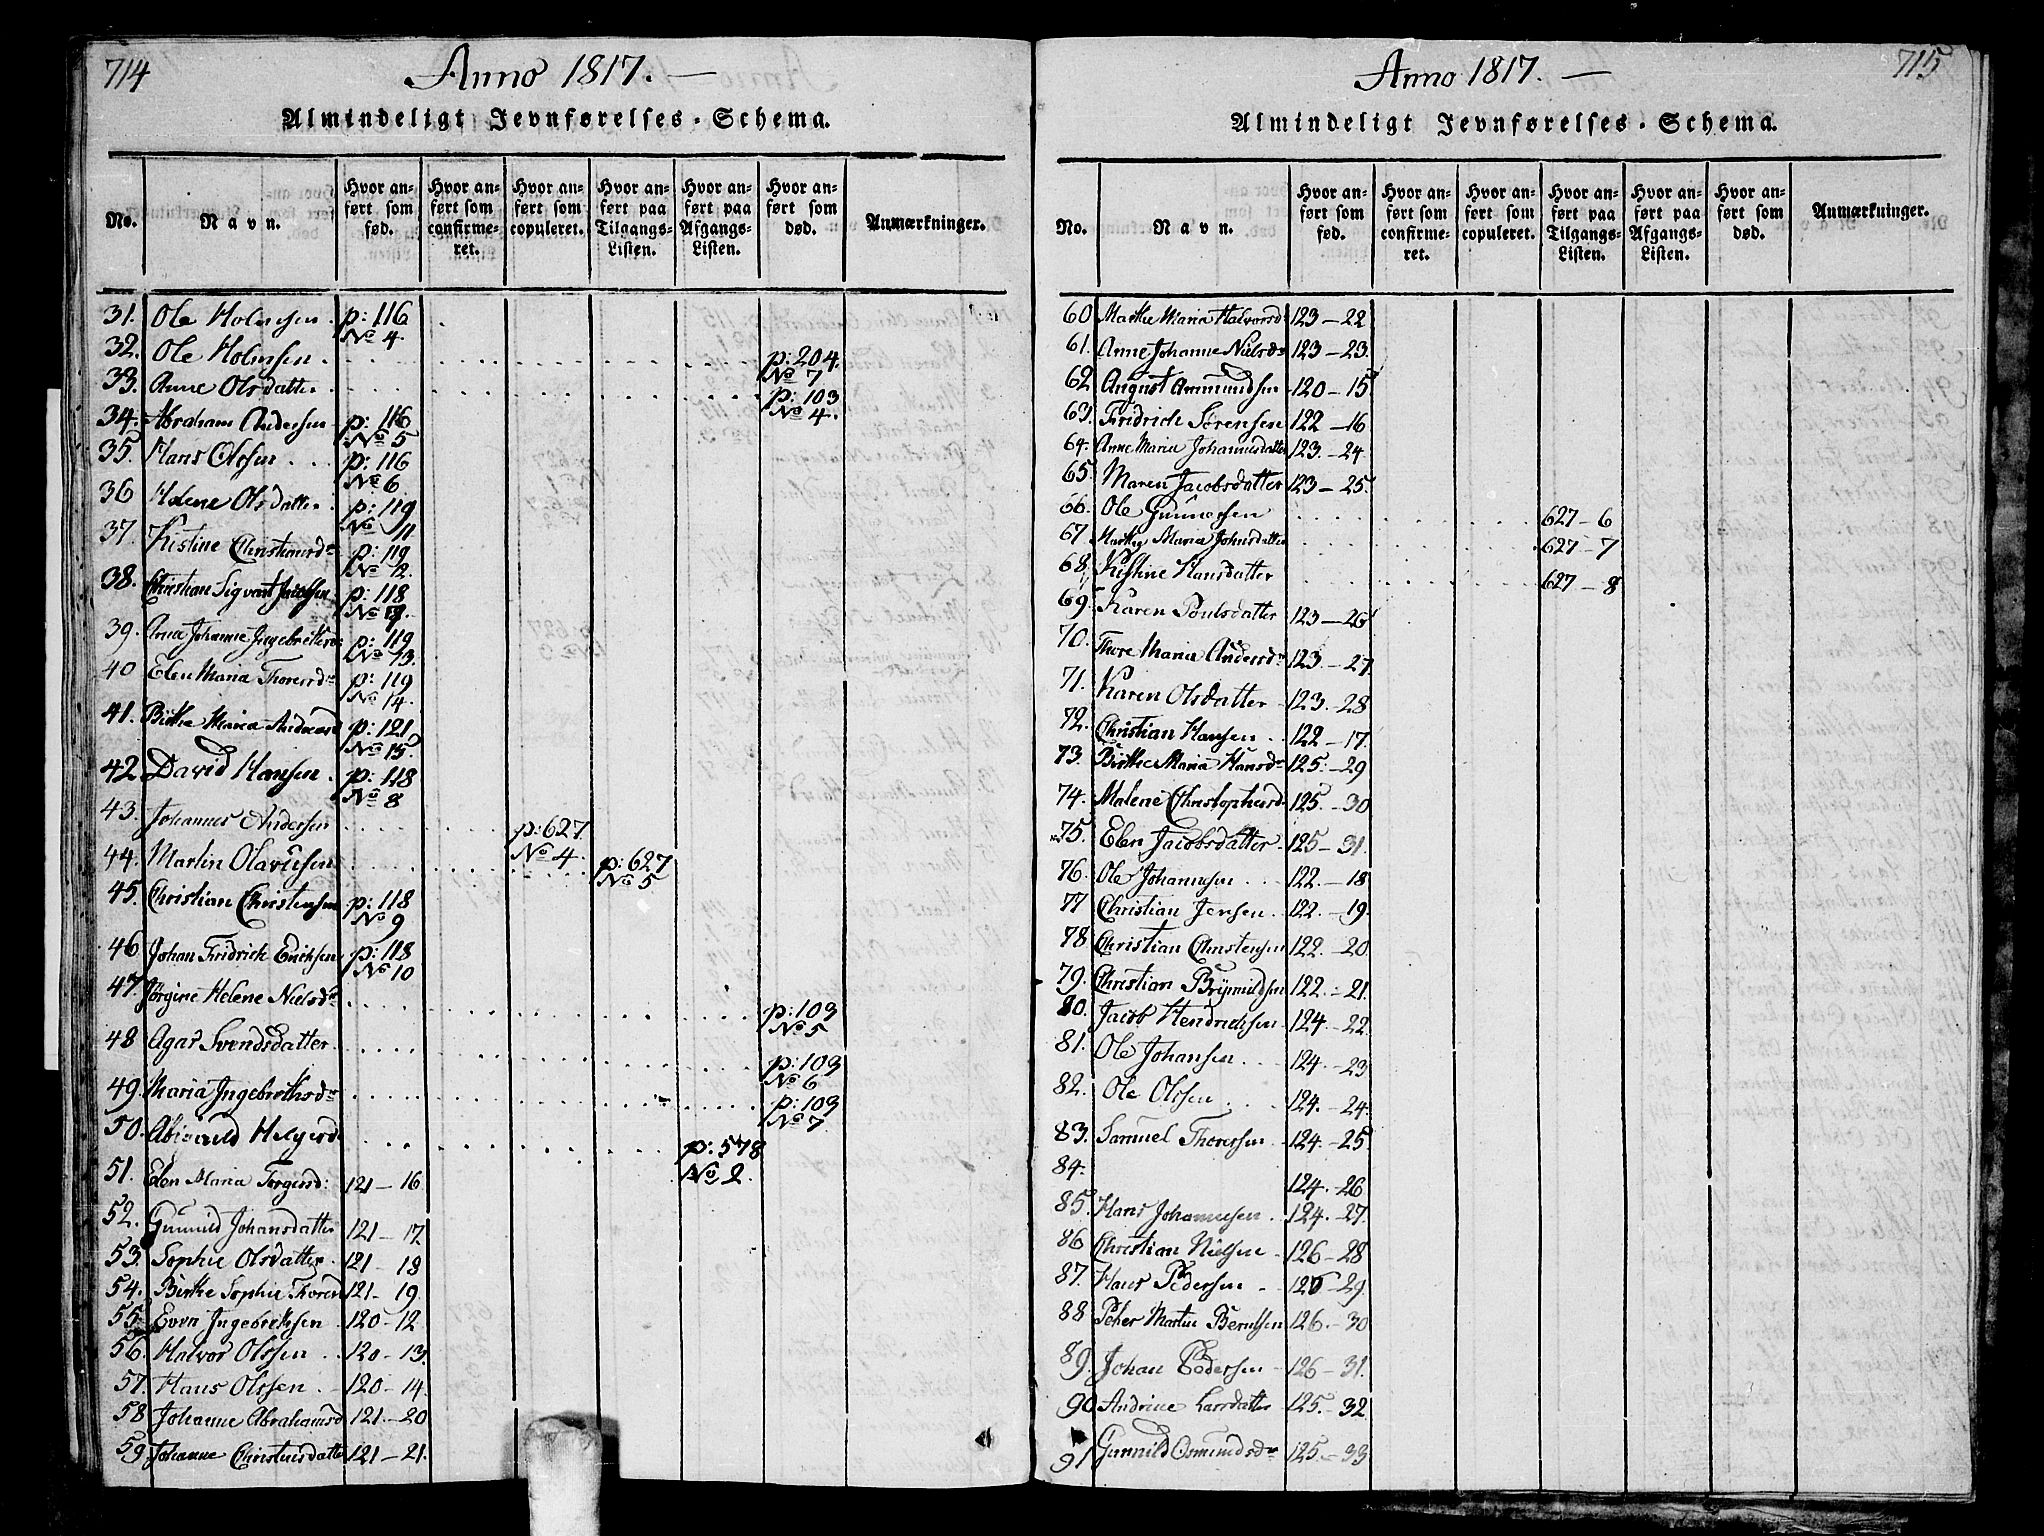 714
Anno 1817. —
Almindeligt Jevnførelses-Schema.
No.
Navn.
Hvor an-
ført som
fød.
Hvor an-
ført som
confirme-
ret.
Hvor an-
ført som
copuleret.
Hvor an-
ført paa
Tilgangs-
Listen.
Hvor an-
ført paa
Afgangs-
Listen.
Hvor an-
ført som
død.
Anmærkninger.
31. Ole Holmsen p: 116 No 4.
32. Ole Holmsen p: 204. No 7
33. Anne Olsdatter p: 103 No 4.
34. Abraham Andersen p: 116 No 5
35. Hans Olssen p: 116 No 6
36 Helene Olsdatter p: 119 No 11
37. Kistine Christiansdr p: 119 No 12.
38. Christian Sigvart Jacobsen p: 118 No
39. Anna Johanne Ingebrettsd p: 119 No 13.
40 Elen Maria Thoresdr p: 119 No 14.
41. Birthe Maria Andreasd p: 121 No 15.
42. David Hansen p: 118 No 8
43. Johannes Andersen p: 627 No 4.
44. Martin Olavesen p: 627 No 5
45. Christian Christensen p: 118 No 9
46 Johan Fridrich Erichsen p: 118 No 10
47. Jørgine Helene Nielsdr p: 103 No 5
48 Agar Svendsdatter p: 103 No 6
49. Maria Ingebrethsdr p: 103 No 7
50. Helgesd p: 578 No 2.
51. Elen Maria Torgersd: 121 — 16
52. Gunnild Johansdatter 121 — 17.
53. Sophie Olsdatter 121 — 18
54. Birthe Sophie Thoresd 121 — 19
55. Even Ingebrethsen 120 — 12
56. Halvor Olssen 120 — 13.
57. Hans Olssen 120 — 14.
58 Johanne Abrahamsd 121. — 20
59 Johanne Christensdatte 121 — 21.
715
Anno 1817. —
Almindeligt Jevnførelses-Schema.
No.
Navn.
Hvor an-
ført som
fød.
Hvor an-
ført som
confirme-
ret.
Hvor an-
ført som
copuleret.
Hvor an-
ført paa
Tilgangs-
Listen.
Hvor an-
ført paa
Afgangs-
Listen.
Hvor an-
ført som
død.
Anmærkninger.
60 Marthe Maria Halvorsd: 123 — 22
61. Anne Johanne Nielsdr 123 — 23.
62. August Ammundsen 120 — 15
63. Fridrich Sørensen 122 — 16
64. Anne Maria Johannesdatter 123. — 24
65. Maren Jacobsdatter 123 — 25.
66. Ole Gunnersen 627 — 6
67. Marthe Maria Johnsdatter 627 — 7
68. Kistine Hansdatter 627 — 8
69. Karen Poulsdatter 123 — 26
70. Thore Maria Andersdr 123. — 27
71. Karen Olsdatter 123. — 28
72. Christian Hansen 122 — 17.
73. Birthe Maria Hansdr 125. — 29
74. Malene Christophersd 125. — 30
75. Elen Jacobsdatter 125 — 31.
76. Ole Johannesen 122. — 18
77 Christian Jensen 122. — 19.
78 Christian Christensen 122. — 20
79. Christian Brynnildsen 122. — 21.
80. Jacob Hendrichsen 124. — 22.
81. Ole Johansen 124. — 23
82. Ole Olssen 124. — 24.
83. Samuel Thoressen 124. — 25
84. 124. — 26
85. Hans Johannesen 124. — 27.
86 Christian Nielsen 126 — 28
87. Hans Pedersen 126 — 29
88 Peher Martin Berntsen 126. — 30
89. Johan Pedersen 126 — 31.
90 Andrine Larsdatter 125. — 32
91 Gunnild Osmundsdr 125. — 33